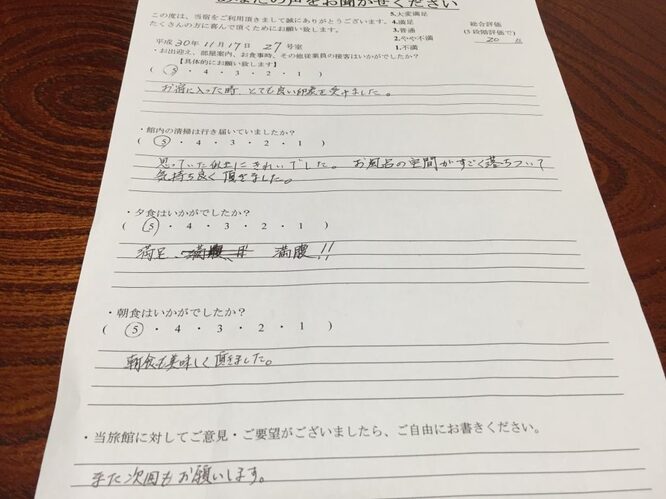 あなたの声をお聞かせください
この度は、当宿をご利用頂きまして誠にありがとうございます。
たくさんの方に喜んで頂くためにお願い致します。
5.大変満足
4.満足
3.普通
2.やや不満
1.不満
総合評価
(5段階評価で)
20 点
平成 30年 11月 17日 27号室
・お出迎え、部屋案内、お食事時、その他従業員の接客はいかがでしたか?
【具体的にお願い致します】
( 5 ・ 4 ・ 3 ・ 2 ・ 1 )
お宿に入った時、とても良い印象を受けました。
・館内の清掃は行き届いていましたか?
( 5 ・ 4 ・ 3 ・ 2 ・ 1 )
思っていた以上にきれいでした。 お風呂の空間がすごく落ちついて
気持ち良く頂きました。
・夕食はいかがでしたか?
( 5 ・ 4 ・ 3 ・ 2 ・ 1 )
満足 満腹!!
・朝食はいかがでしたか?
( 5 ・ 4 ・ 3 ・ 2 ・ 1 )
朝食も美味しく頂きました。
・当旅館に対してご意見・ご要望がございましたら、ご自由にお書きください。
また次回もお願いします。